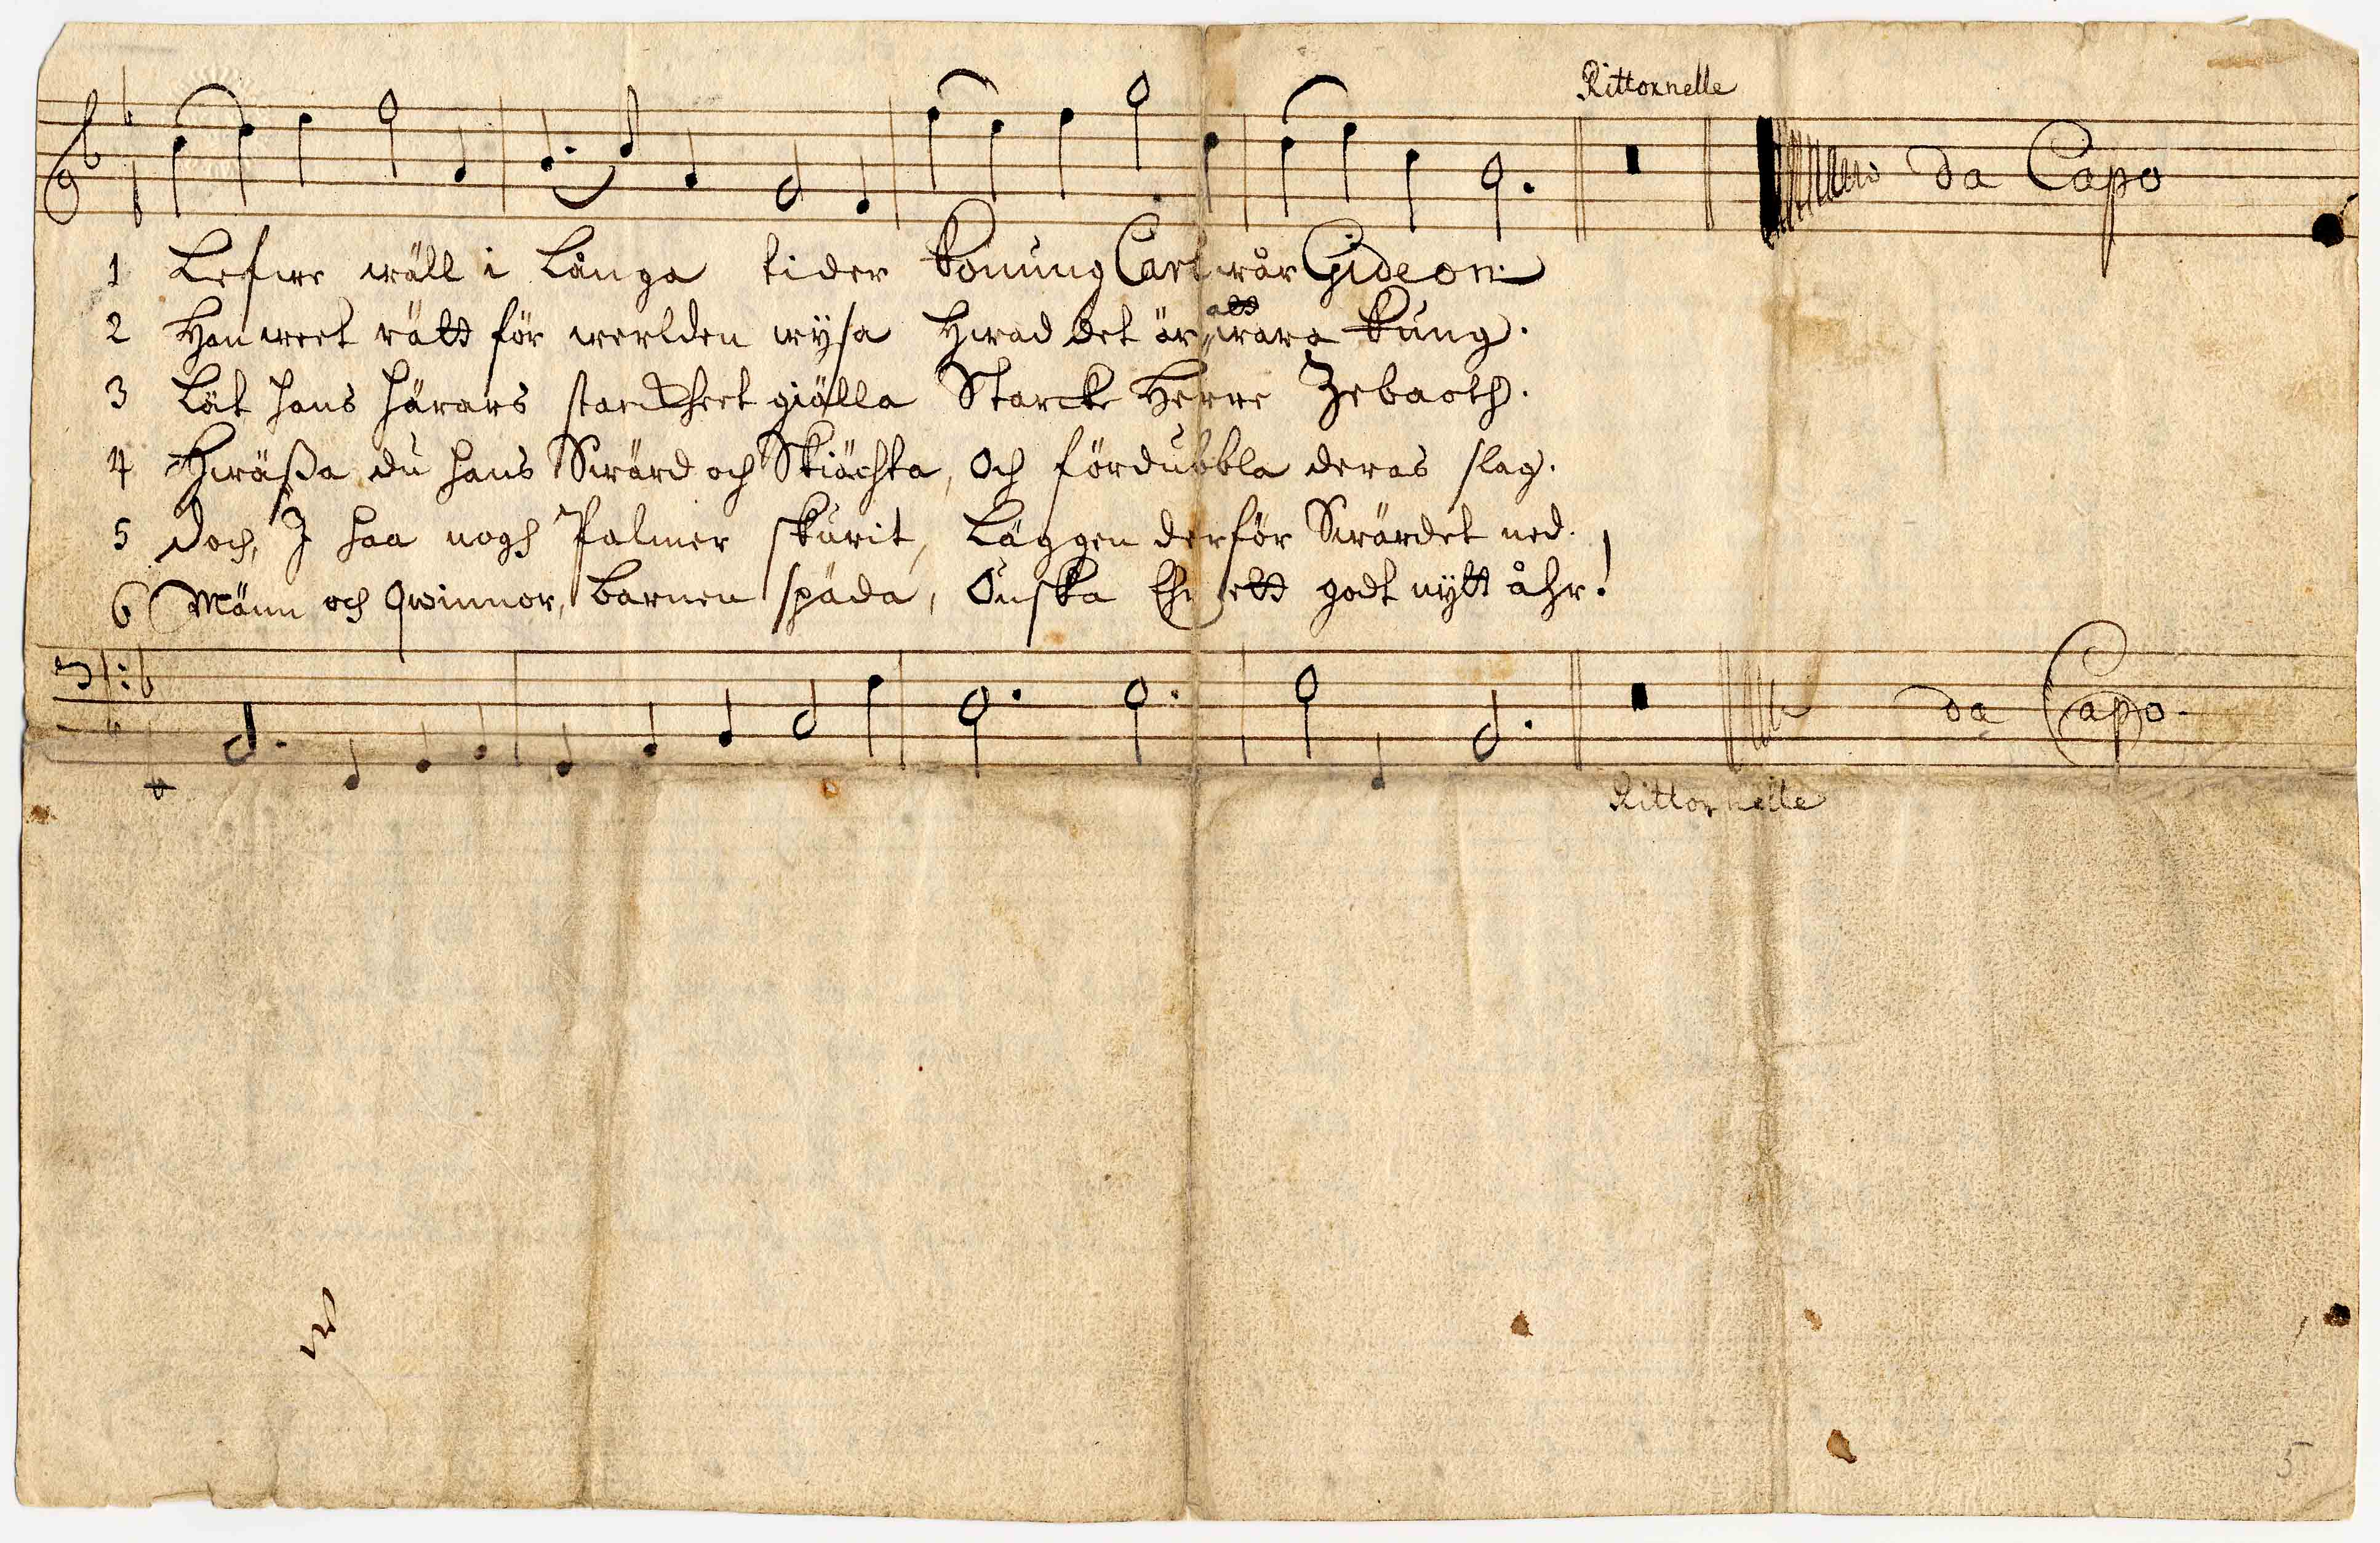 Rittornelle
da Capo
1 Lefwe wäll i Långa tider Konung Carl wår Gideon
2 Han weet rätt för werlden wysa Hwad det är att wara Kung.
3 Låt hans härars starckheet giälla Starcke Herre Zebaoth.
4 Hwäßa du hans Swärd och Skiächta, Och fördubbla deras slag.
5 Doch, I haa nogh Palmer skurit, Läggen derför Swärdet ned.
6 Männ och Qwinnor, barnen späda, Önska Ehr ett godt nytt åhr!
da Capo.
Rittornelle
5